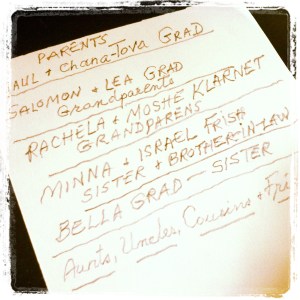 PARENTS
AUL + Chana-Tova GRAD
SALOMON + LEA GRAD
Grandparents
RACHELA + MOSHE KLARNET
GRANDPARENS
MINNA + ISRAEL FRISH
SISTER + BROTHER-IN-LAW
BELLA GRAD — SISTER
Aunts, Uncles, Cousins + Fri